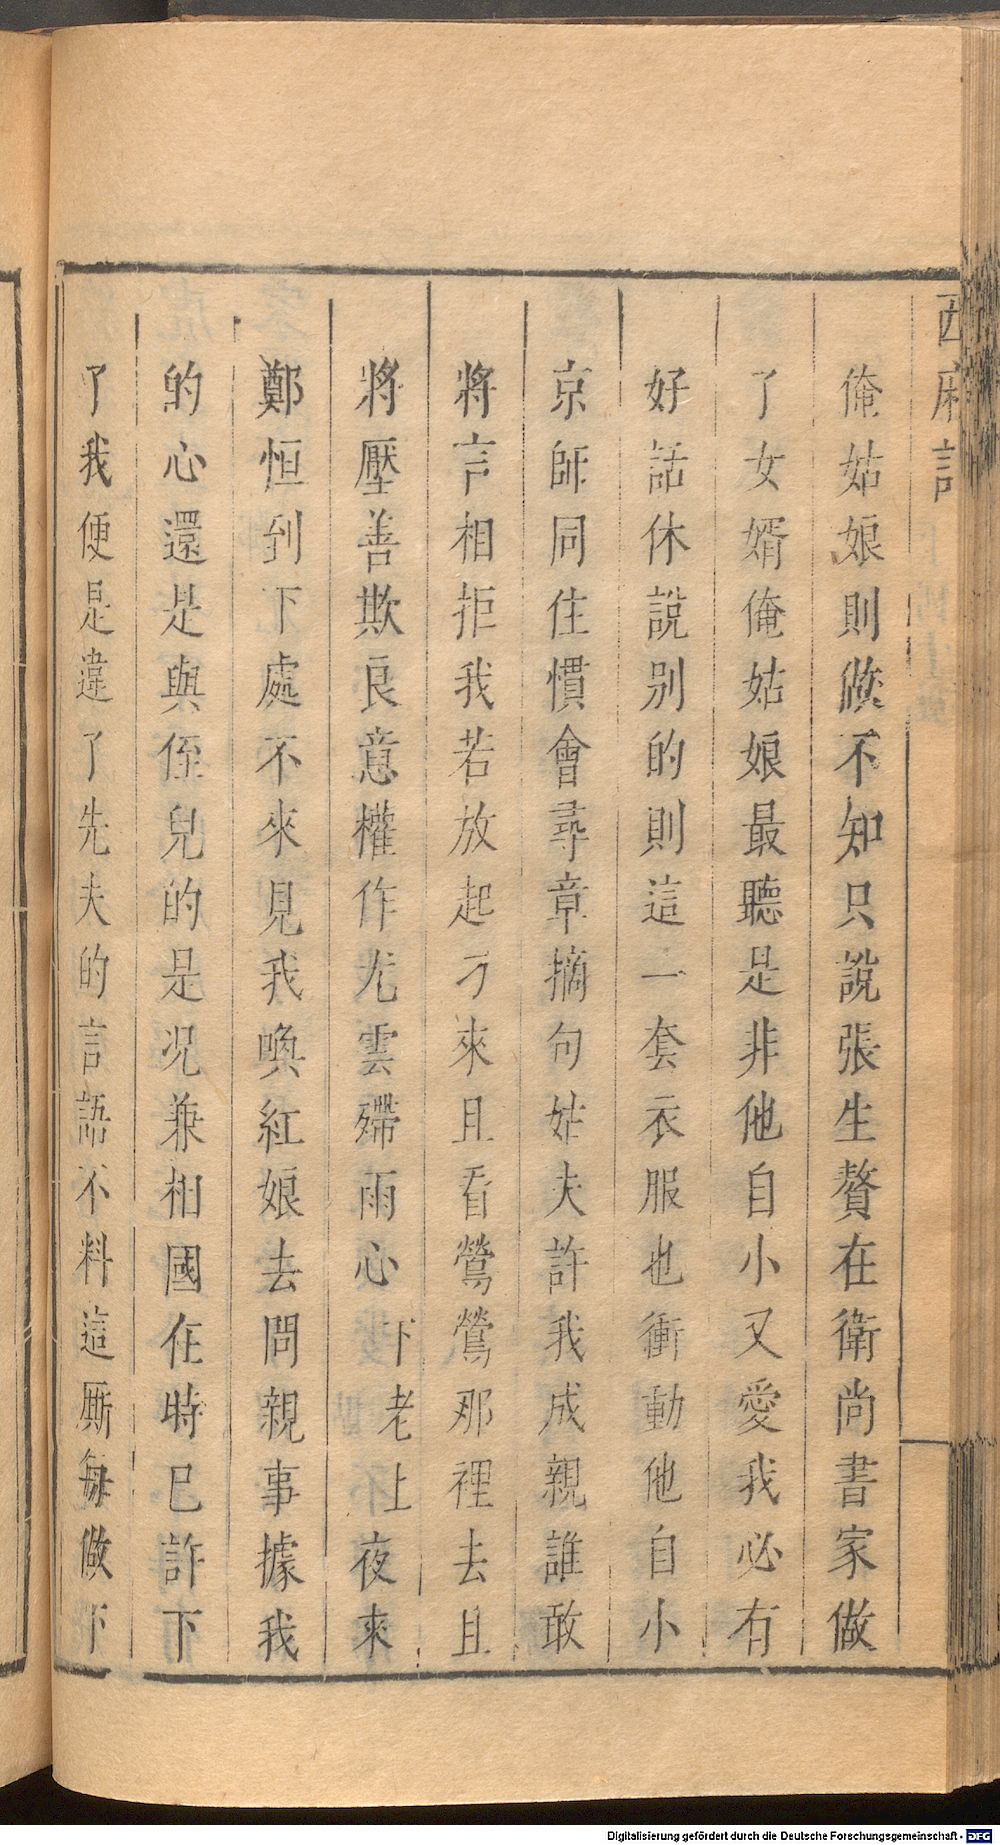 西廂記
俺姑娘則做不知只說張生贅在衛尚書家做
了女婿俺姑娘最聽是非他自小又愛我必有
好話休說别的則這一套衣服也衝動他自小
京師同住慣會尋章摘句姑夫許我成親誰敢
將言相拒我若放起刁來且看鶯鶯那裡去且
將壓善欺良意權作尤雲殢雨心 下 老上 夜來
鄭恒到下處不來見我喚紅娘去問親事據我
的心還是與侄兒的是况兼相國在時已許下
了我便是違了先夫的言語不料這厮每做下
Digitalisierung gefördert durch die Deutsche Forschungsgemeinschaft - DFG